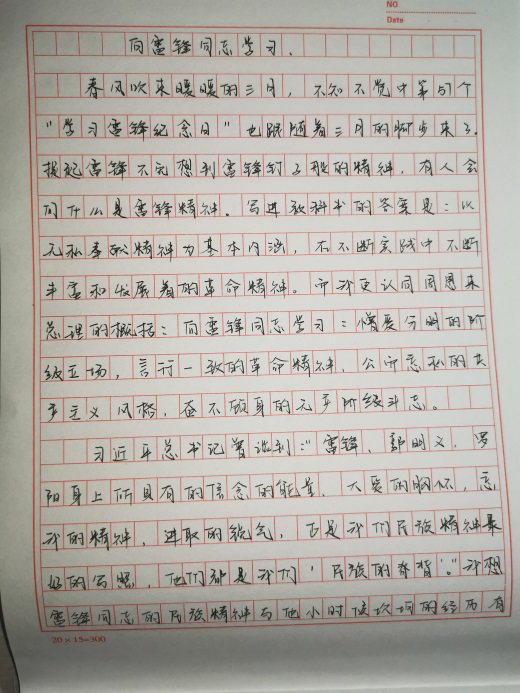 NO.
Date
向雷锋同志学习.
春风吹来暖暖的三月，不知不觉中第57个
"学习雷锋纪念日"也跟随着三月的脚步来了.
提起雷锋不免想到雷锋钉子般的精神，有人会
问什么是雷锋精神。写进教科书的答案是：以
无私奉献精神为基本内涵，在不断实践中不断
丰富和发展着的革命精神。而我更认同周恩来
总理的概括：向雷锋同志学习：憎爱分明的阶
级立场，言行一致的革命精神，公而忘私的共
产主义风格，奋不顾身的无产阶级斗志。
习近平总书记曾谈到："雷锋、郭明义、罗
阳身上所具有的信念的能量、大爱的胸怀、忘
我的精神、进取的锐气，正是我们民族精神最
好的写照，他们都是我们'民族的脊背'。"我想
雷锋同志的民族精神与他小时候坎坷的经历有
20×15=300